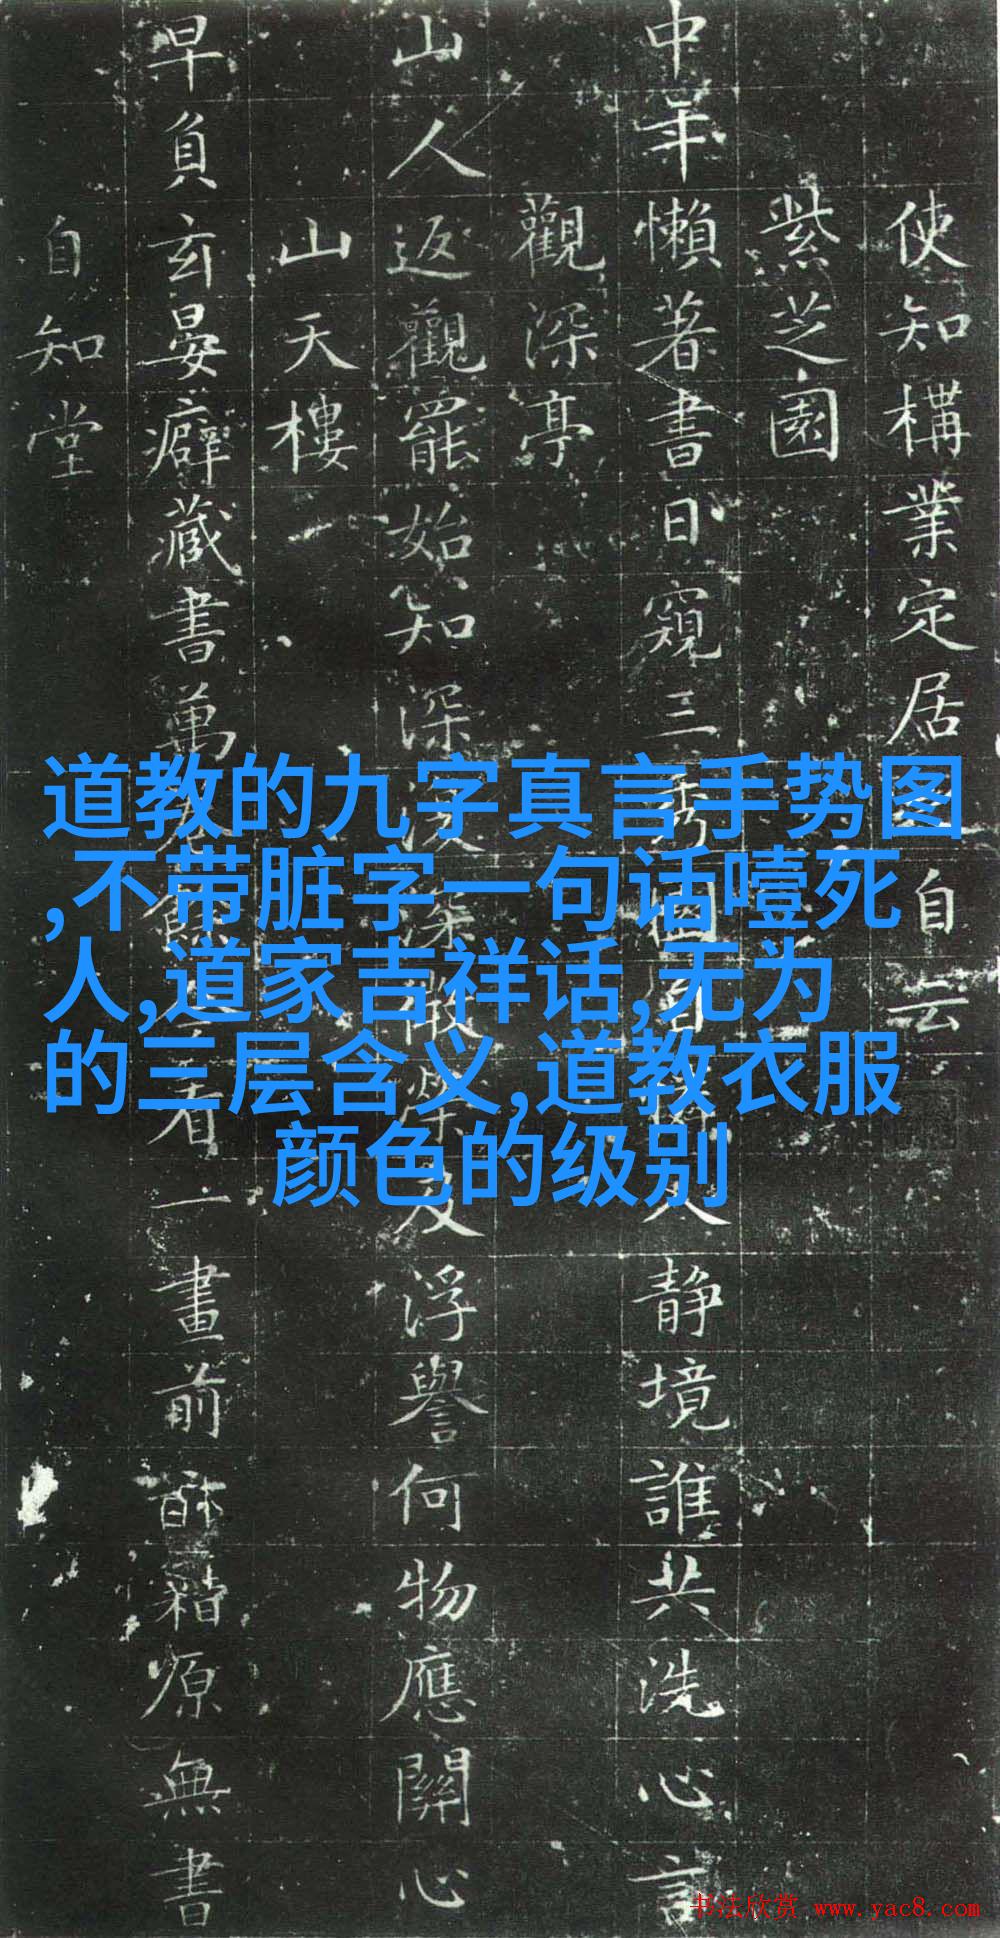 使知構業定居自云
紫芝園
中年懶著書日窺三園人靜境誰共洗心言
觀深亭
山人返觀罷始知深及浮譽何物應關心
山天樓
早負玄晏癖藏書萬看一畫前籍原無書
自知堂
道教的九字真言手势图
,不带脏字一句话噎死
人,道家吉祥话,无为
的三层含义,道教衣服
颜色的级别
书法欣赏 www.yac8.com